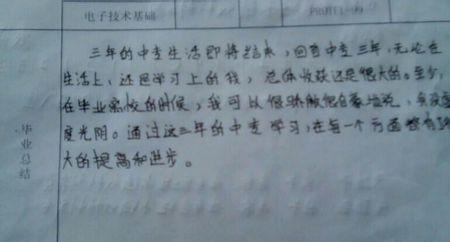 电子技术基础 PROTEL-99
三年的中专生活即将结束，回首中专三年，无论在
生活上、还是学习上的我，总体收获还是很大的。至少，
在毕业离校的时候，我可以很骄傲很自豪地说，我没虚
度光阴。通过这三年的中专学习，在每一个方面都有
大的提高和进步。
毕业总结